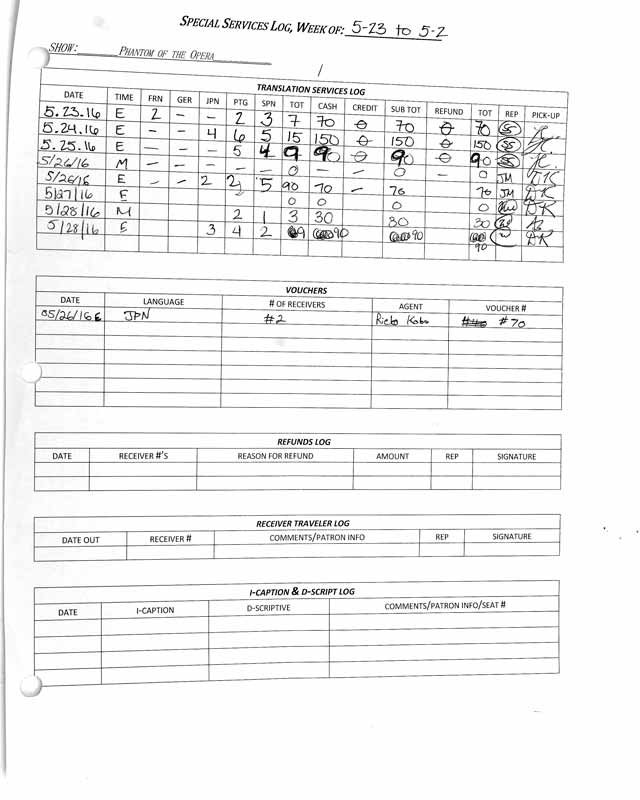 SPECIAL SERVICES LOG, WEEK OF: 5-23 to 5-2
SHOW: PHANTOM OF THE OPERA
TRANSLATION SERVICES LOG
DATE TIME FRN GER JPN PTG SPN TOT CASH CREDIT SUB TOT REFUND TOT REP PICK-UP
5.23.16 E 2 – – 2 3 7 70 0 70 0 70 SS
5.24.16 E – – 4 6 5 15 150 0 150 0 150 SS
5.25.16 E – – – 5 4 9 90 0 90 0 90 SS
5/26/16 M – – – – – 0 – – 0 – 0 JM DK
5/26/16 E – – 2 2 5 90 70 – 70 70 JM DK
5/27/16 E 0 0 0 0 DK
5/28/16 M 2 1 3 30 30 30
5/28/16 E 3 4 2 9 90 90 90 DK
VOUCHERS
DATE LANGUAGE # OF RECEIVERS AGENT VOUCHER #
05/26/16 E JPN #2 #70
REFUNDS LOG
DATE RECEIVER #'S REASON FOR REFUND AMOUNT REP SIGNATURE
RECEIVER TRAVELER LOG
DATE OUT RECEIVER # COMMENTS/PATRON INFO REP SIGNATURE
I-CAPTION & D-SCRIPT LOG
DATE I-CAPTION D-SCRIPTIVE COMMENTS/PATRON INFO/SEAT #